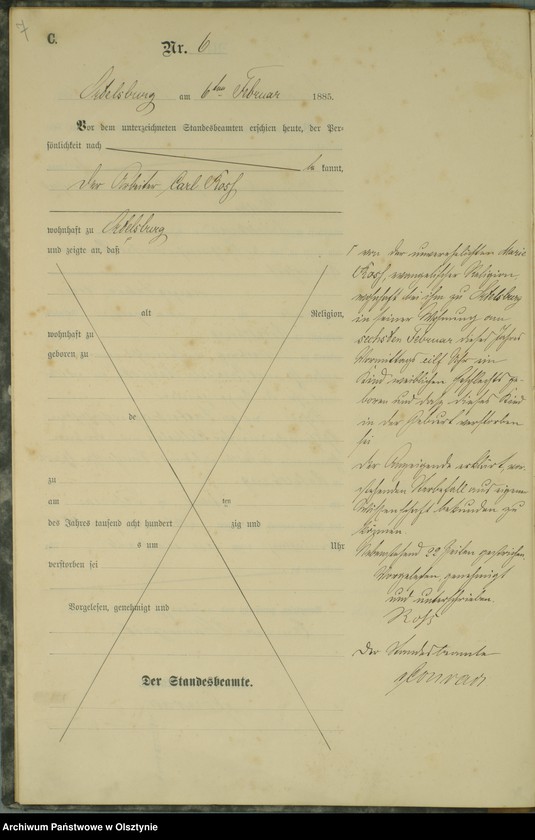 7
C.
Nr. 6
Adelsburg am 6ten Februar 1885.
Vor dem unterzeichneten Standesbeamten erschien heute, der Per-
sönlichkeit nach
be kannt,
der Arbeiter Carl Koss
wohnhaft zu Adelsburg
und zeigte an, daß
alt Religion,
wohnhaft zu
geboren, zu
de
zu
am ten
des Jahres tausend acht hundert zig und
o um Uhr
verstorben sei
Vorgelesen, genehmigt und
Der Standesbeamte.
von der unverehelichten Marie
Koss, evangelischer Religion
wohnhaft bei ihm zu Adelsburg
in seiner Wohnung am
sechsten Februar dieses Jahres
Vormittags eilf Uhr ein
Kind weiblichen Geschlechts ge-
boren und daß dieses Kind
in der Geburt verstorben
sei
Der Anzeigende erklärt, vor-
stehenden Sterbefall aus eigener
Wissenschaft bekunden zu
können
Nebenstehend 22 Zeilen gestrichen.
Vorgelesen, genehmigt
und unterschrieben.
Koss
Der Standesbeamte
Conrad
Archiwum Państwowe w Olsztynie